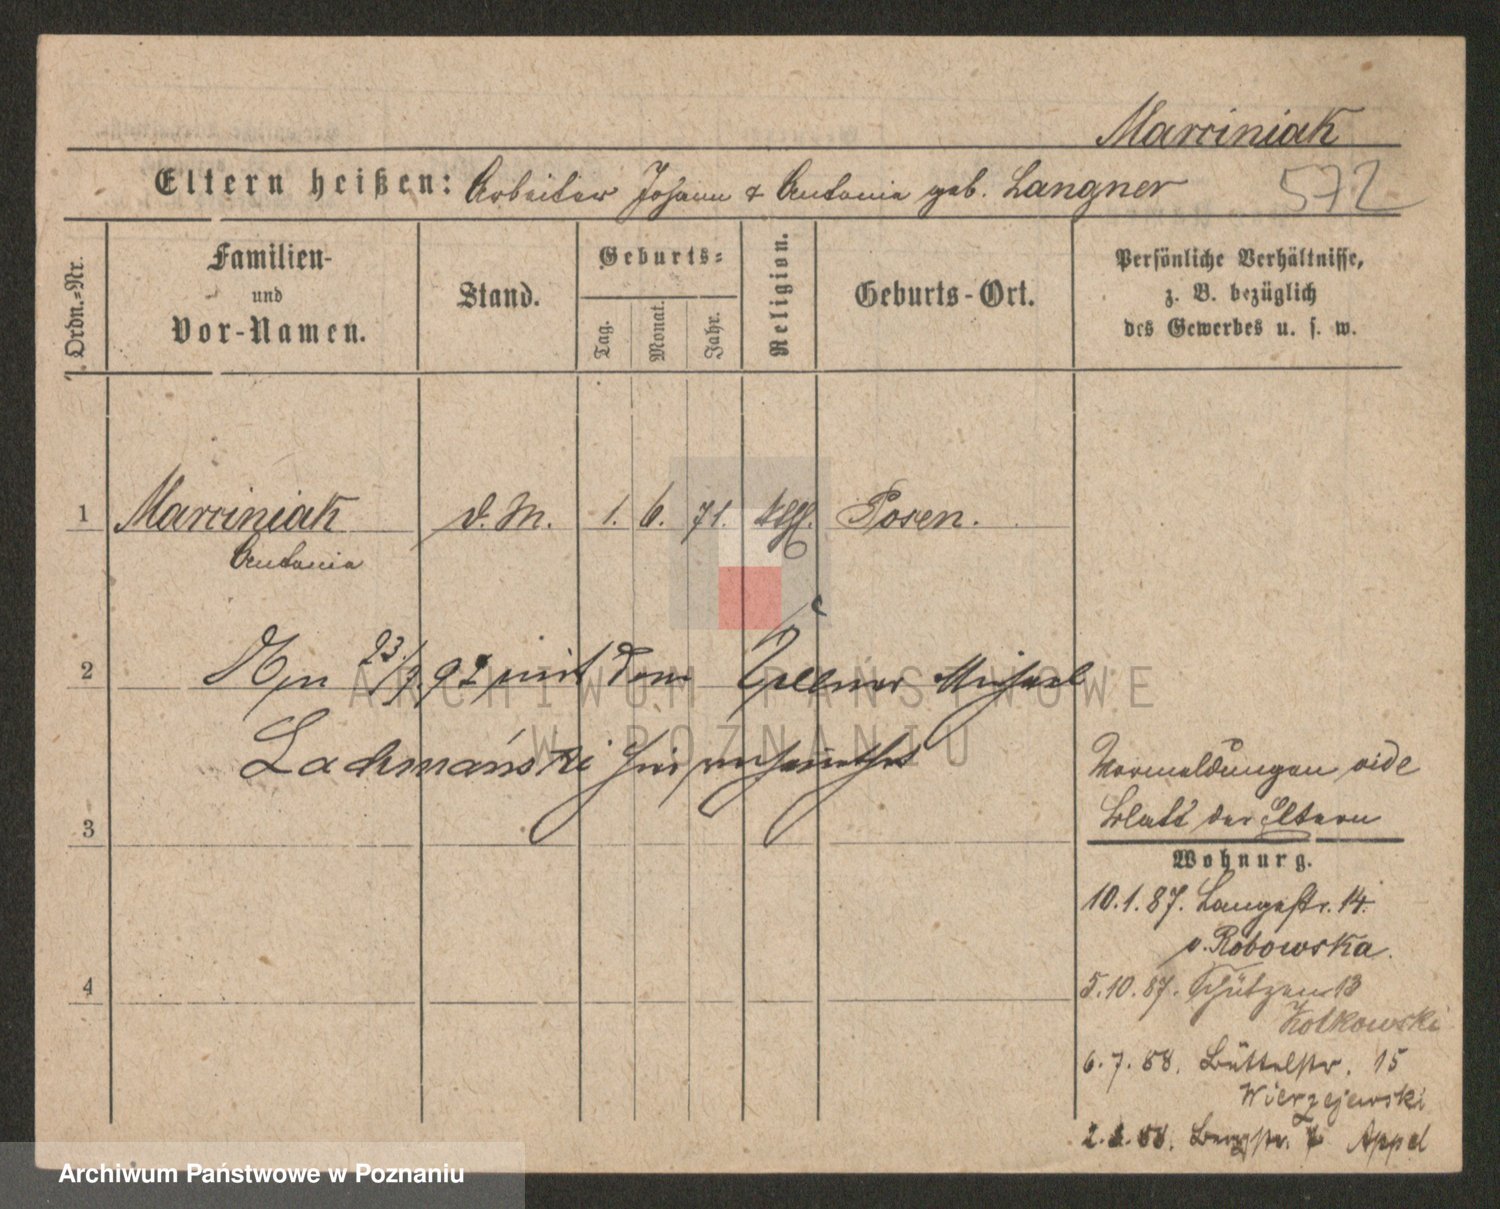 Marciniak
Eltern heißen: Arbeiter Johann & Antonie geb. Langner 572
Ordn.-Nr.
Familien-
und
Vor-Namen.
Stand.
Geburts-
Tag.
Monat.
Jahr.
Religion.
Geburts-Ort.
Persönliche Verhältnisse,
z. B. bezüglich
des Gewerbes u. s. w.
1 Marciniak d. M. 1. 6. 71. kath. Posen.
Antonia
2 Am 23./9. 92 mit dem Kellner Michael
Lachmański hier verheirathet
Vormeldungen vide
Blatt der Eltern
3
Wohnung.
10.1.87. Langestr. 14.
b. Robowska.
4
5.10.87. Schützen 13
Kotkowski
6.7.88. Büttelstr. 15
Wierzejewski
Bergstr. 7 Appel
ARCHIWUM PAŃSTWOWE
W POZNANIU
Archiwum Państwowe w Poznaniu